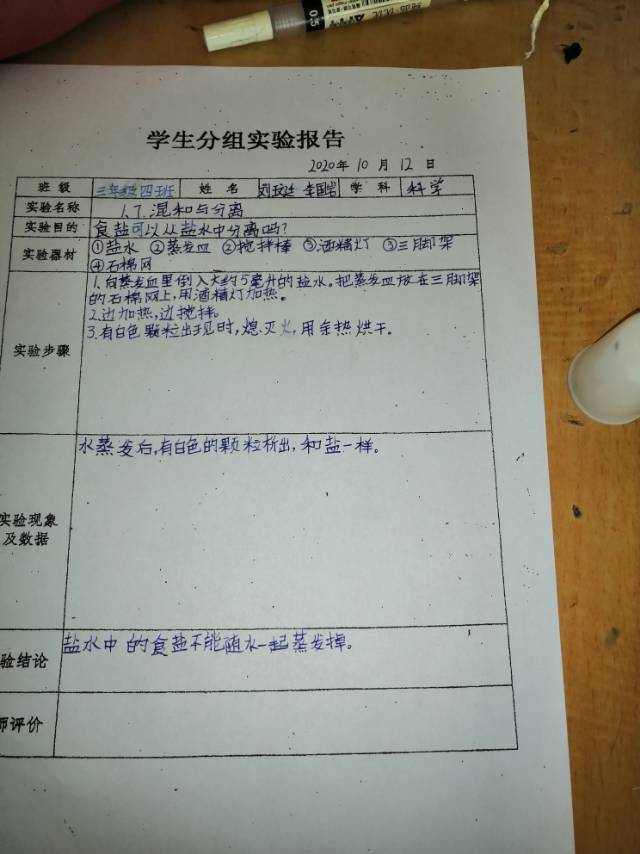 0.5
学生分组实验报告
2020年 10 月 12 日
班级 三年级四班 姓名 学科 科学
实验名称 1.7.混和与分离
实验目的 食盐可以从盐水中分离吗?
实验器材 ①盐水 ②蒸发皿 ②搅拌棒 ③酒精灯 ③三脚架
④石棉网
1.向蒸发皿里倒入大约5毫升的盐水。把蒸发皿放在三脚架
的石棉网上,用酒精灯加热。
2.边加热,边搅拌。
实验步骤 3.有白色颗粒出现时,熄灭火,用余热烘干。
水蒸发后,有白色的颗粒析出,和盐一样。
实验现象
及数据
盐水中的食盐不能随水一起蒸发掉。
验结论
师评价